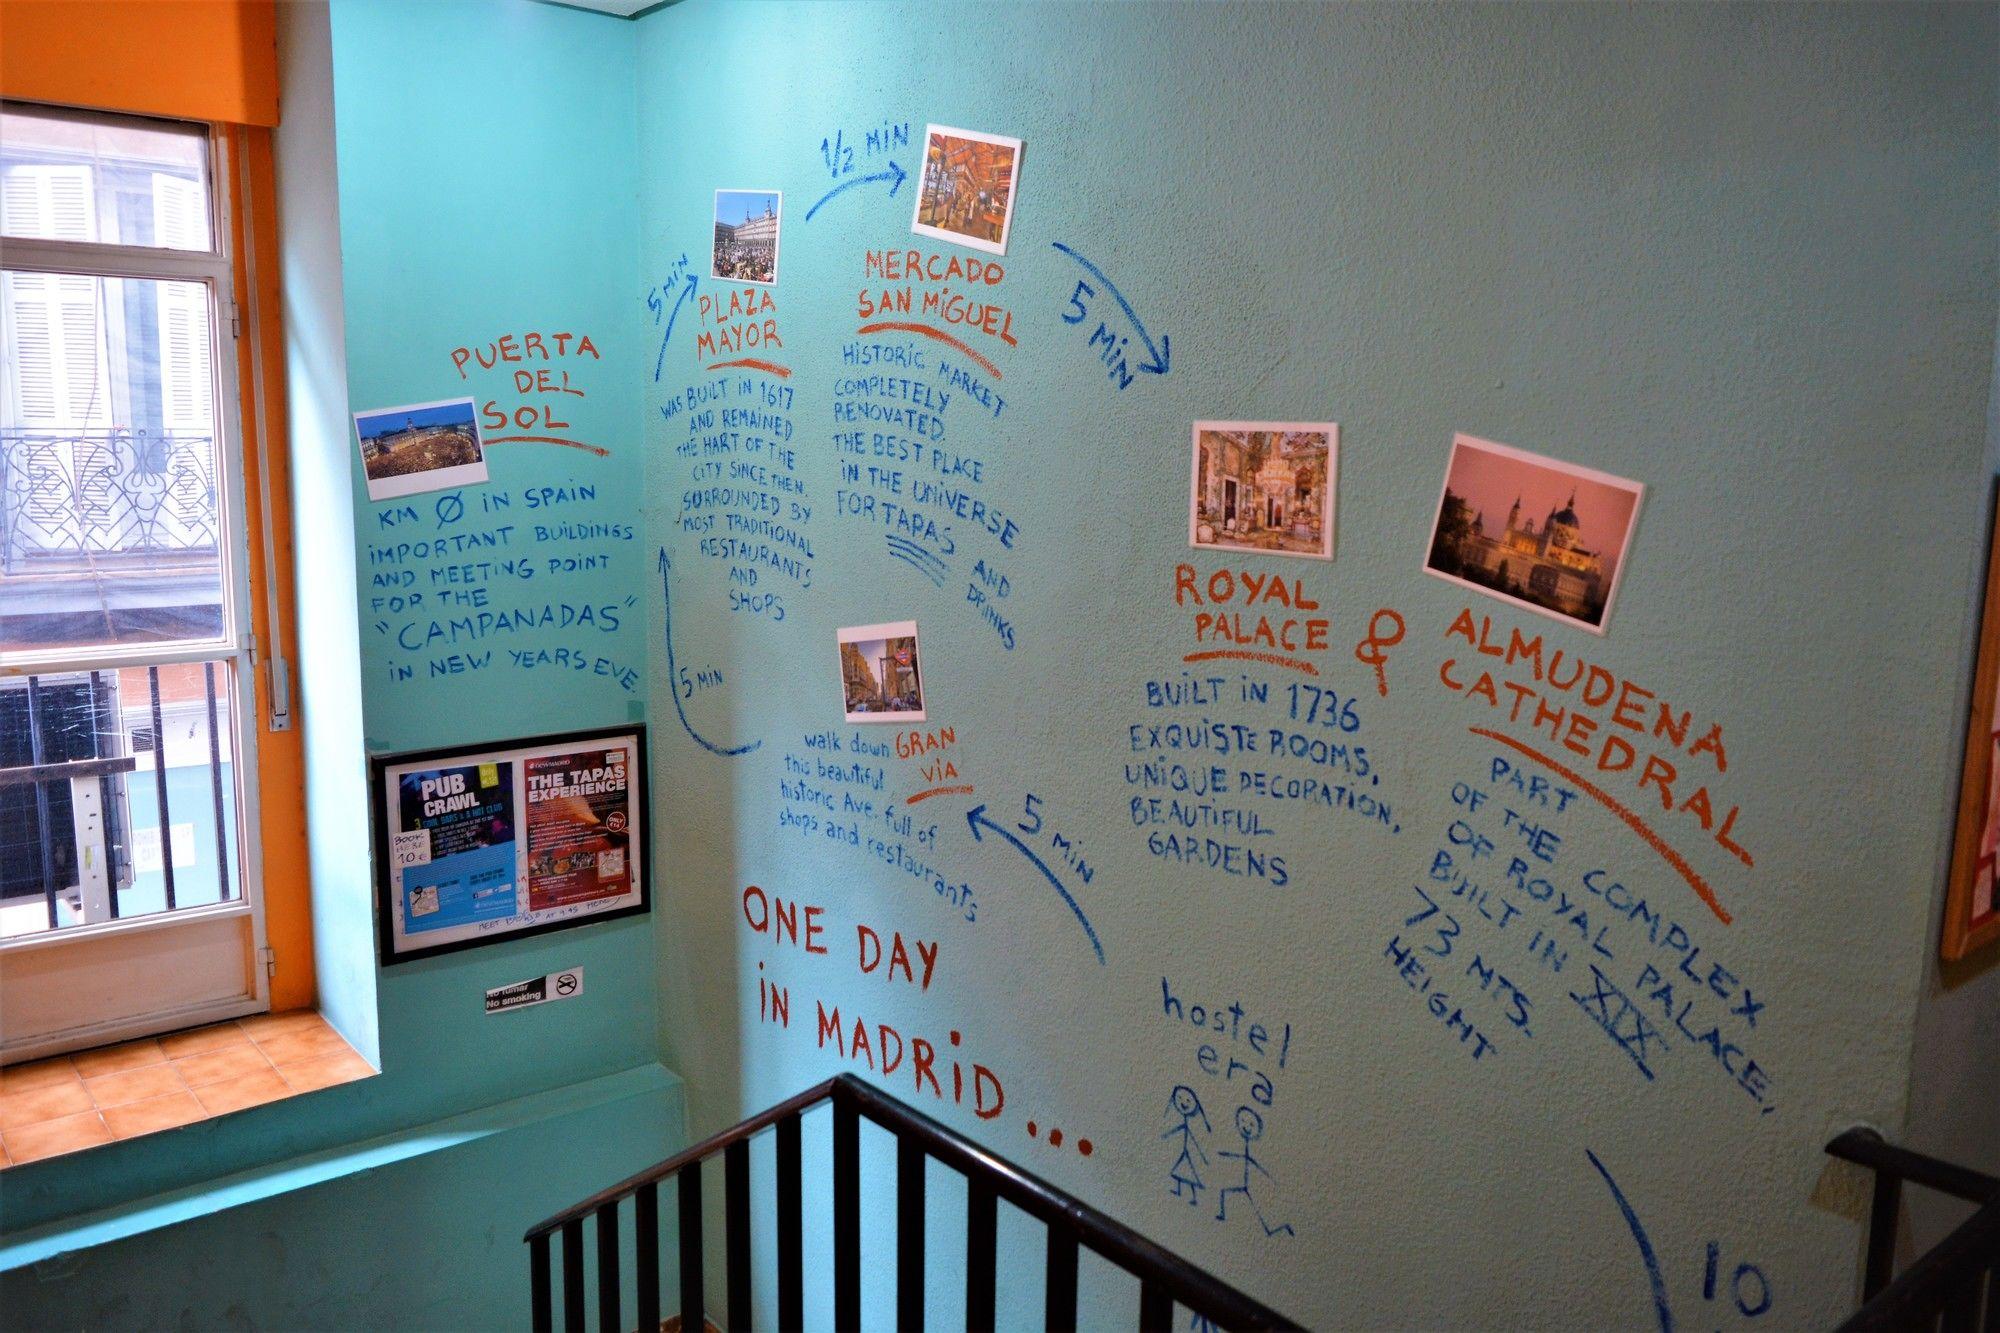 PUERTA
DEL
SOL
KM Ø iN SPAiN
iMPORTANT BUiLDiNGS
AND MEETiNG POiNT
FOR THE
"CAMPANADAS"
iN NEW YEARS EVE.
5 MiN
PLAZA
MAYOR
WAS BUiLT iN 1617
AND REMAiNED
THE HART OF THE
CiTY SiNCE THEN.
SURROUNDED BY
MOST TRADiTiONAL
RESTAURANTS
AND
SHOPS
1/2 MiN
MERCADO
SAN MiGUEL
HiSTORiC MARKET
COMPLETELY
RENOVATED.
THE BEST PLACE
iN THE UNiVERSE
FOR TAPAS AND
DRiNKS
5 MiN
ROYAL
PALACE &
BUiLT iN 1736
EXQUiSTE ROOMS,
UNiQUE DECORATiON,
BEAUTiFUL
GARDENS
ALMUDENA
CATHEDRAL.
PART
OF THE COMPLEX
OF ROYAL PALACE,
BUiLT iN XIX
73 MTS.
HEiGHT
5 MiN
walk down GRAN
ViA
this beautiful
historic Ave. full of
shops and restaurants
5 MiN
ONE DAY
iN MADRiD...
hostel
era
10
PUB
CRAWL
BOOK
HERE
10 €
NEWMADRID
THE TAPAS
EXPERIENCE
ONLY
MEET
AT 9:45
No fumar
No smoking